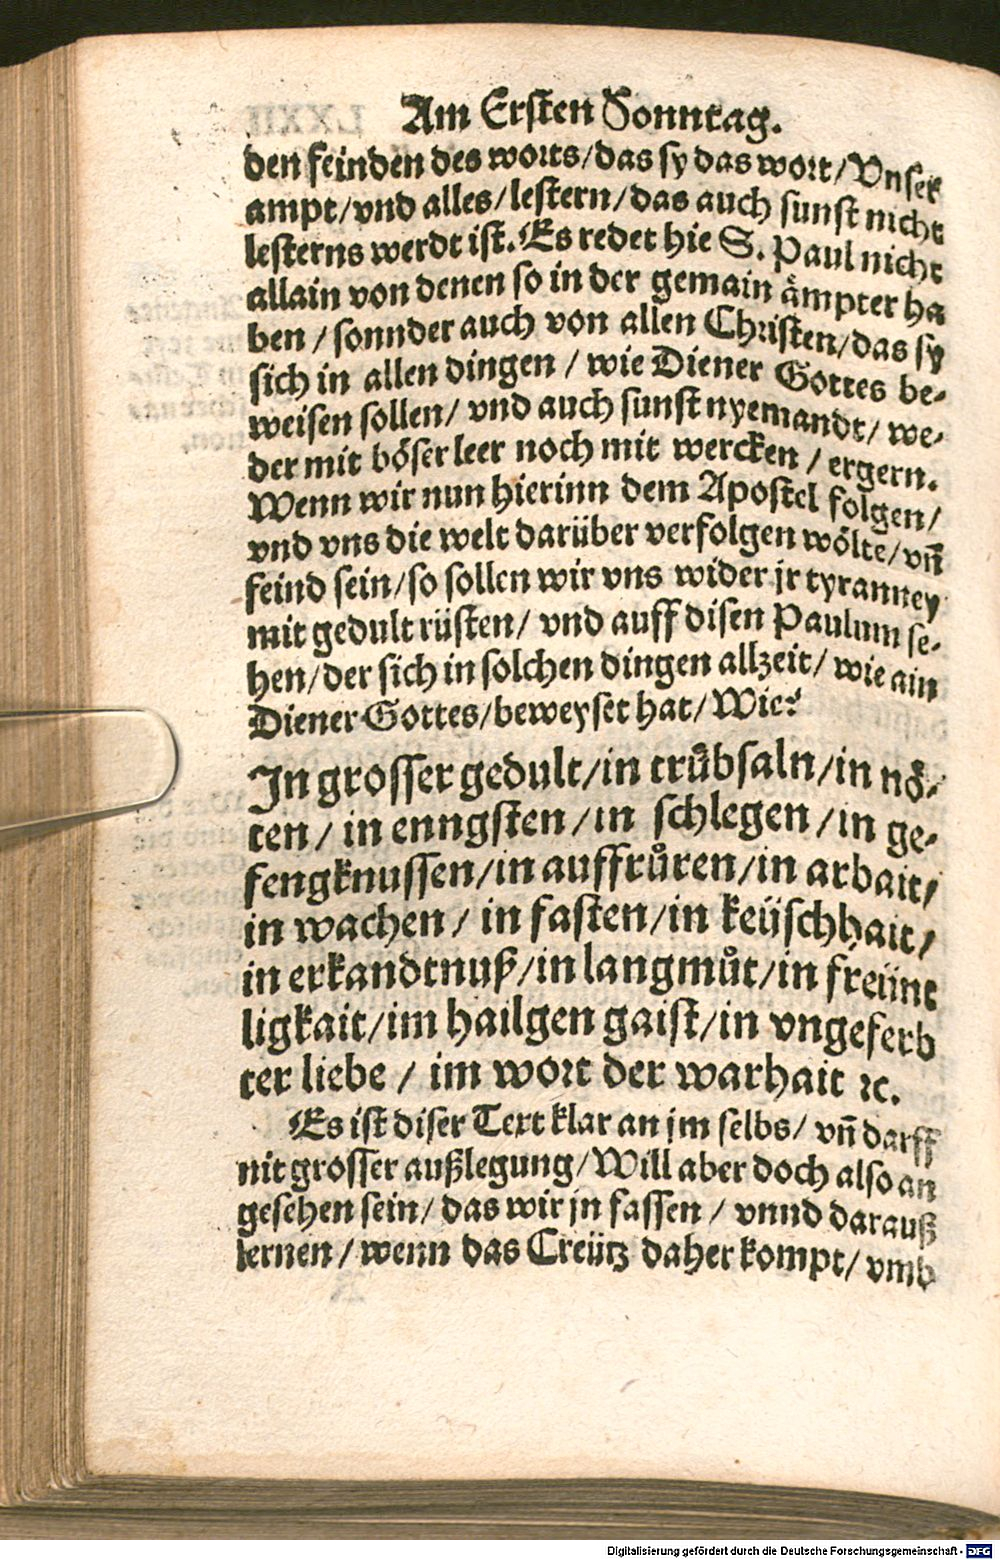 Am Ersten Sonntag.
den feinden des worts/das sy das wort/Vnser
ampt/vnd alles/lestern/das auch sunst nicht
lesterns werdt ist. Es redet hie S. Paul nicht
allain von denen so in der gemain aͤmpter ha
ben / sonnder auch von allen Christen/das sy
sich in allen dingen / wie Diener Gottes be-
weisen sollen/ vnd auch sunst nyemandt/ we-
der mit boͤser leer noch mit wercken / ergern.
Wenn wir nun hierinn dem Apostel folgen/
vnd vns die welt darüber verfolgen woͤlte/ vñ
feind sein/so sollen wir vns wider jr tyranney
mit gedult rüsten/ vnd auff disen Paulum se-
hen/der sich in solchen dingen allzeit/ wie ain
Diener Gottes/beweyset hat/ Wie?
In grosser gedult/in truͤbsaln/in noͤ-
ten/ in enngsten/in schlegen /in ge-
fengknussen/in auffruͦren/in arbait/
in wachen/ in fasten/in keüschhait/
in erkandtnuß/in langmuͦt/in freünt
ligkait/im hailgen gaist/in vngeferb
ter liebe / im wort der warhait ꝛc.
Es ist diser Text klar an jm selbs/ vñ darff
nit grosser außlegung/Will aber doch also an
gesehen sein/ das wir jn fassen / vnnd darauß
lernen /wenn das Creütz daher kompt/ vmb
Digitalisierung gefördert durch die Deutsche Forschungsgemeinschaft - DFG